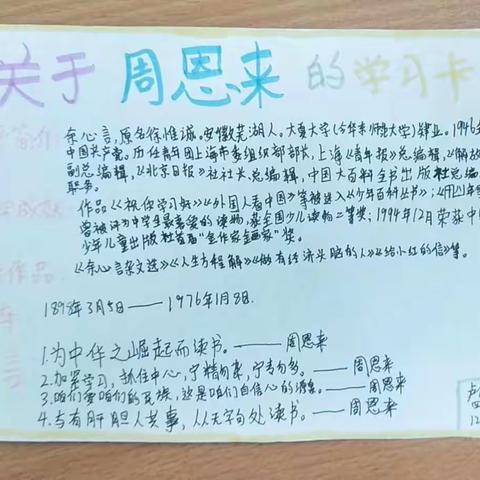 关于周恩来的学习卡
简介
余心言,原名徐惟诚。安徽芜湖人。大夏大学(今华东师范大学)肄业。1946
中国共产党。历任青年团上海市委组织部部长,上海《青年报》总编辑,《解放
副总编辑,《北京日报》社社长、总编辑,中国大百科全书出版社总编
职务。
作品《祝你学习好》《外国人看中国》等被选入《少年百科丛书》;
曾被评为中学生最喜爱的读物,获全国少儿读物二等奖;1994年12月荣获中
少年儿童出版社首届"金作家金画家"奖。
《余心言杂文选》《人生方程解》《做有经济头脑的人》《给小红的信》等。
作品
1898年3月5日——1976年1月8日.
言
1.为中华之崛起而读书。——周恩来
2.加紧学习,抓住中心,宁精勿杂,宁专勿多。——周恩来
3.咱们爱咱们的民族,这是咱们自信心的源泉。——周恩来
4.与有肝胆人共事,从无字句处读书。——周恩来